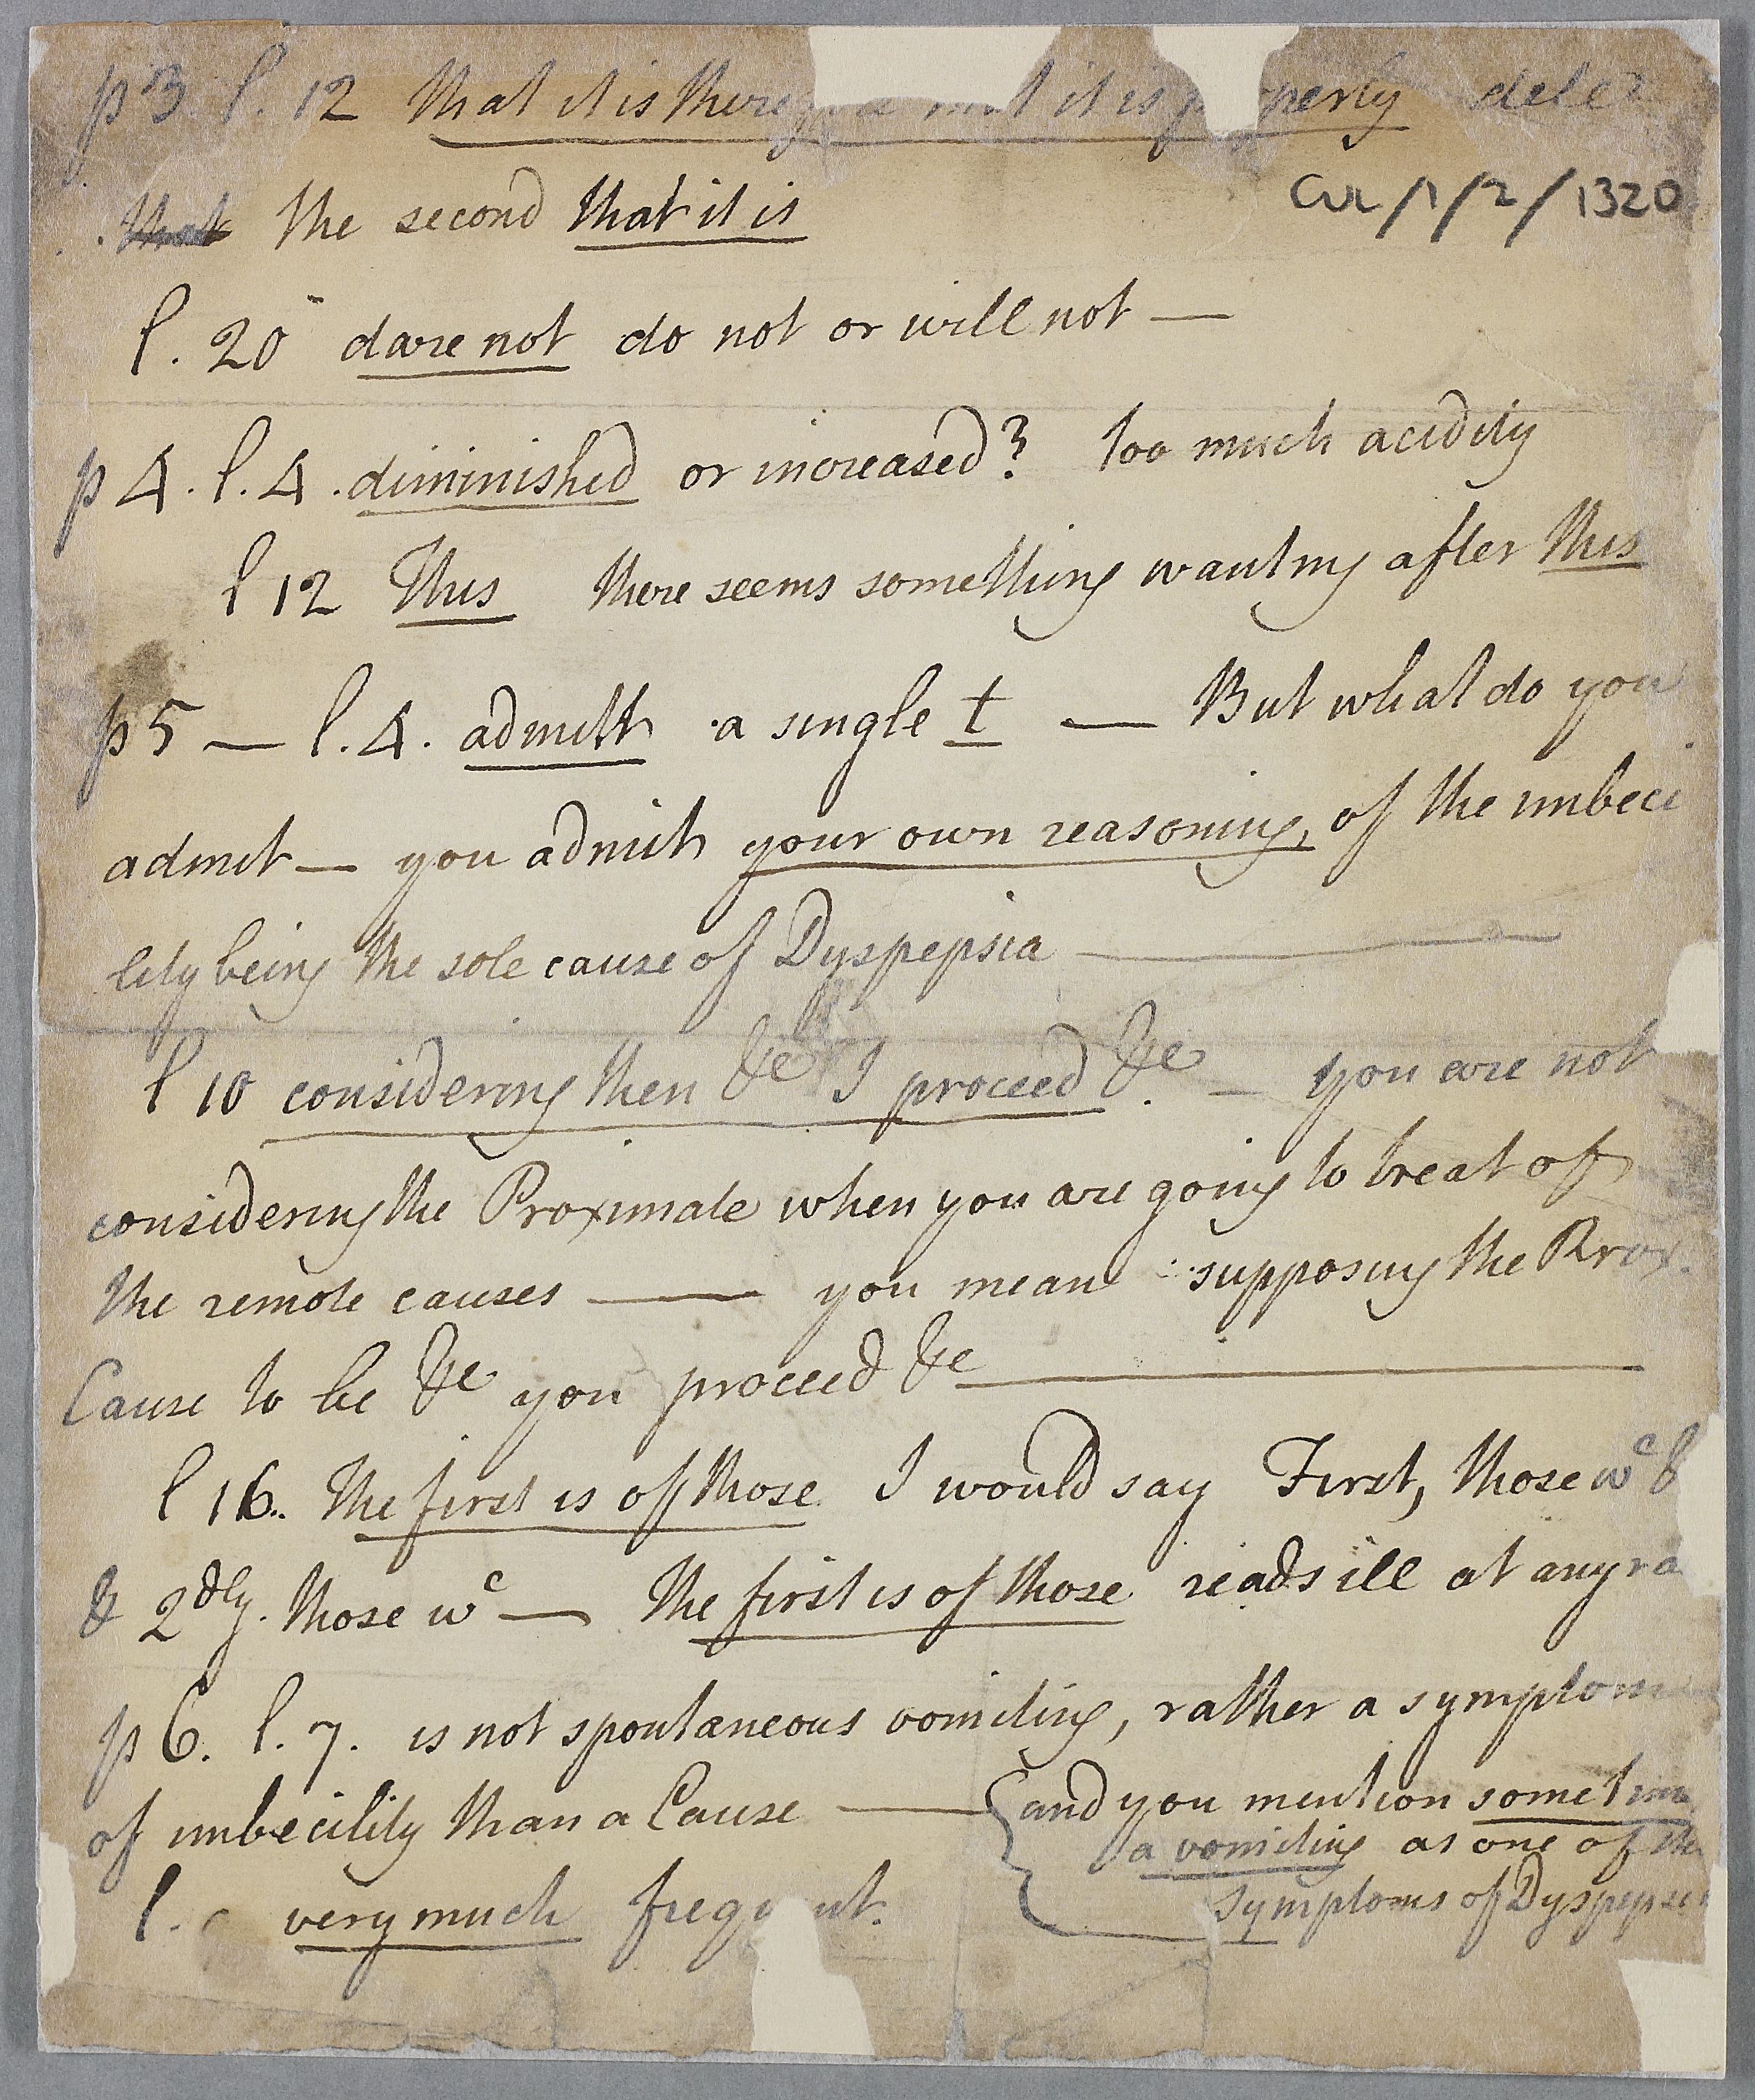 p 3 l. 12 that it is there it is dele
the second that it is
CUL/1/2/1320
l. 20 dare not do not or will not —
p 4. l. 4. diminished or increased? too much acidity
l 12 Thus there seems something wanting after thus
p 5 — l. 4. admitt a single t — But what do you
admit — you admit your own reasoning, of the imbeci
lity being the sole cause of Dyspepsia —
l 10 considering then &c I proceed &c. — you are not
considering the Proximate when you are going to treat of
the remote causes — you mean supposing the Prox.
Cause to be &c you proceed &c —
l 16. The first is of those I would say First, those wc
& 2dly. those wc — the first is of those reads ill at any ra
p 6. l. 7. is not spontaneous vomiting, rather a symptom
of imbecility than a Cause — {and you mention sometim
a vomiting as one of the
symptoms of Dyspepsi
l. very much frequent.